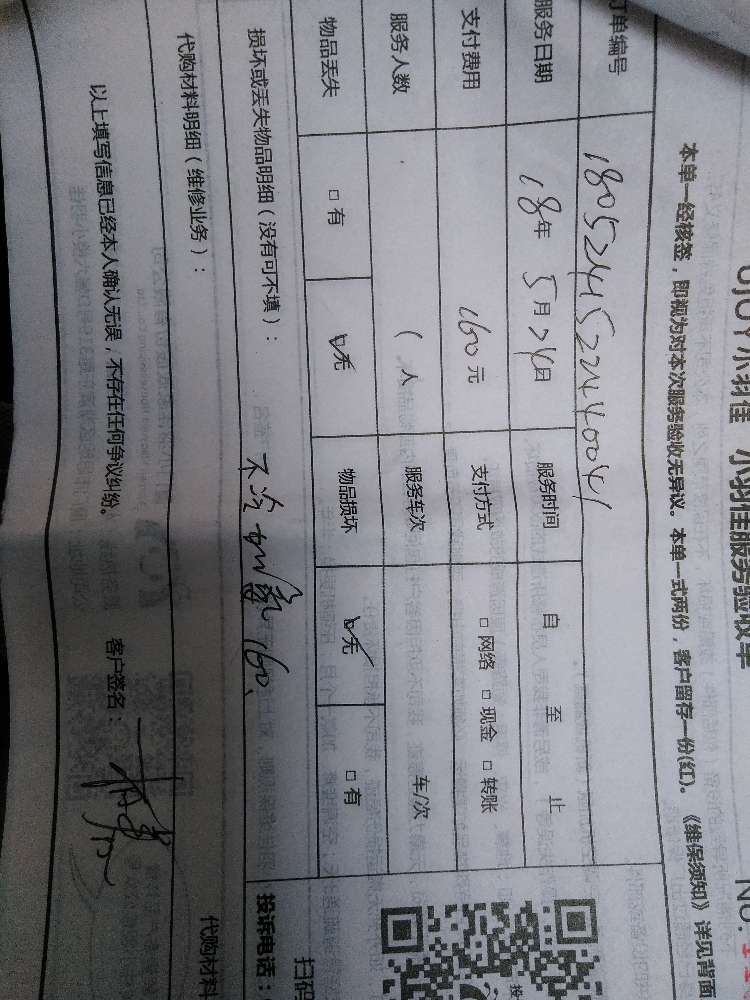 UJOY小羽佳 小羽佳服务验收单
No.
本单一经核签，即视为对本次服务验收无异议。本单一式两份，客户留存一份(红)。《维保须知》详见背面
订单编号 18052441522440041
服务日期 18年 5月24日 服务时间 自 至 止
支付费用 160元 支付方式 □网络 □现金 □转账
服务人数 1人 服务车次 车/次
物品丢失 □有 ☑无 物品损坏 ☑无 □有
损坏或丢失物品明细（没有可不填）：
不冷加氟 160.
投诉电话：
扫码
代购材料明细（维修业务）：
代购材料
以上填写信息已经本人确认无误，不存在任何争议纠纷。 客户签名：